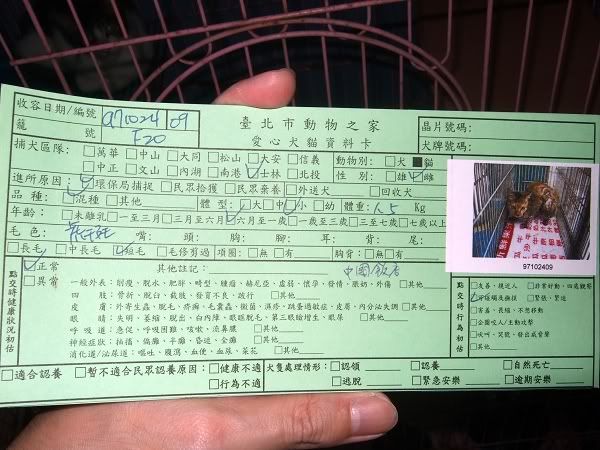 收容日期/編號 971024 09
籠 號 F20
臺北市動物之家
愛心犬貓資料卡
晶片號碼:
犬牌號碼:
捕犬區隊: □萬華 □中山 □大同 □松山 □大安 □信義 動物別: □犬 ■貓
□中正 □文山 □內湖 □南港 ☑士林 □北投 性 別: □雄 ☑雌
進所原因: ☑環保局捕捉 □民眾拾獲 □民眾棄養 □外送犬 □回收犬
品 種: ☑混種 □其他 體 型: □大 □中 ☑小 □幼 體重: 1.5 Kg
年齡: □未離乳 □一至三月 □三月至六月 ☑六月至一歲 □一歲至三歲 □三至七歲 □七歲以上
毛 色: 嘴: 頭: 胸: 腳: 耳: 背: 尾:
□長毛 □中長毛 ☑短毛 □毛修剪過 項圈: □無 □有 胸背: □無 □有
97102409
點交時健康狀況初估
☑正常 其他註記: 中國飯店
□異常 一般外表: 削瘦、脫水、肥胖、畸型、腫瘤、赫尼亞、虛弱、懷孕、發情、餵奶、外傷 □其他
四 肢: 骨折、脫臼、截肢、發育不良、跛行 □其他
皮 膚: 外寄生蟲、脫毛、疥癬、毛囊蟲、黴菌、濕疹、跳蚤過敏症、皮膚、內分泌失調 □其他
眼 睛: 失明、萎縮、脫出、白內障、眼瞼脫毛、第三眼瞼增生、眼屎 □其他
呼 吸 道: 急促、呼吸困難、咳嗽、流鼻膿 □其他
神經症狀: 抽搐、偏癱、半癱、昏迷、全癱 □其他
消化道/泌尿道: 嘔吐、腹瀉、血便、血尿、菜花 □其他
點交時行為初估
□友善、親近人 □非常好動、四處觀察
可碰觸及撫摸 □緊張、緊迫
□害羞、畏縮、不想移動
□企圖咬人/主動攻擊
□吠叫、哭號、發出威脅聲
□其他
□適合認養 □暫不適合民眾認養原因: □健康不適 犬隻處理情形: □認領 □認養 □自然死亡
□行為不適 □逃脫 □緊急安樂 □逾期安樂